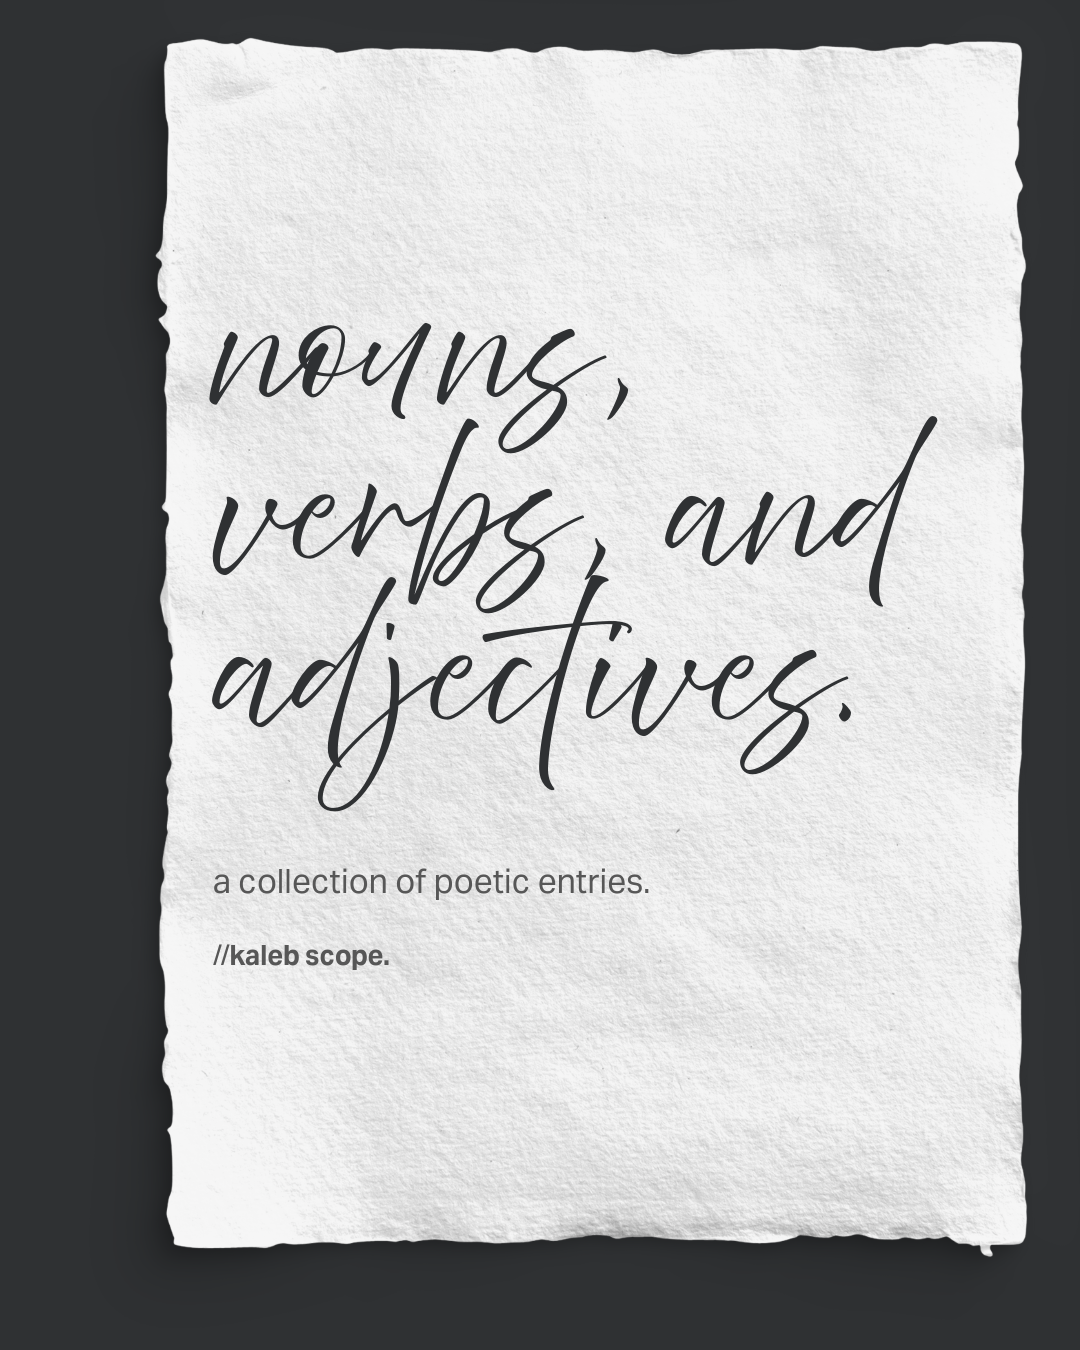 nouns,
verbs, and
adjectives.
a collection of poetic entries.
//kaleb scope.